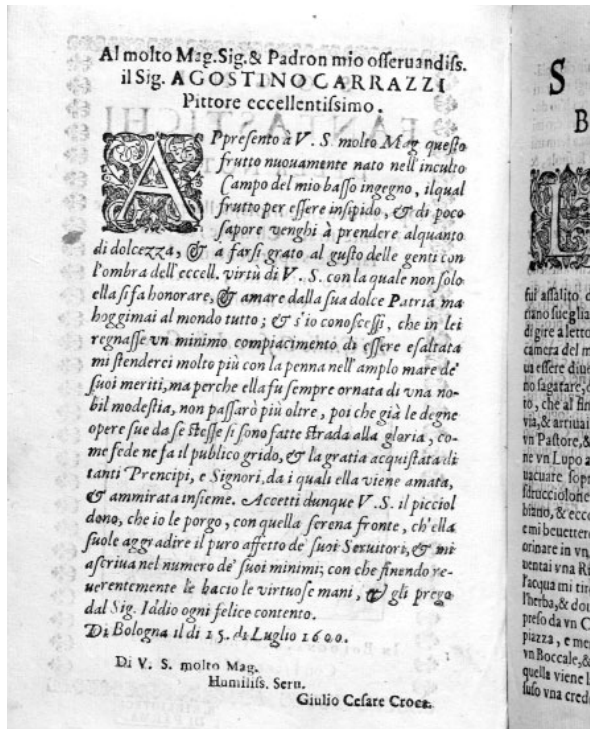 Al molto Mag. Sig. & Padron mio osseruandiss.
il Sig. AGOSTINO CARRAZZI
Pittore eccellentissimo.
APpresento à V. S. molto Mag questo
frutto nuouamente nato nell'inculto
Campo del mio basso ingegno, ilqual
frutto per essere insipido, & di poco
sapore venghi à prendere alquanto
di dolcezza, & a farsi grato al gusto delle genti con
l'ombra dell'eccell. virtù di V. S. con la quale non solo
ella si fa honorare, & amare dalla sua dolce Patria ma
hoggimai al mondo tutto; & s'io conoscessi, che in lei
regnasse vn minimo compiacimento di essere esaltata
mi stenderei molto più con la penna nell'amplo mare de'
suoi meriti, ma perche ella fu sempre ornata di vna no-
bil modestia, non passarò più oltre, poi che già le degne
opere sue da se stesse si sono fatte strada alla gloria, co-
me fede ne fa il publico grido, & la gratia acquistata di
tanti Prencipi, e Signori, da i quali ella viene amata,
& ammirata insieme. Accetti dunque V. S. il picciol
dono, che io le porgo, con quella serena fronte, ch'ella
suole aggradire il puro affetto de' suoi Seruitori, & mi
ascriua nel numero de' suoi minimi; con che finendo re-
uerentemente le bacio le virtuose mani, & gli prego
dal Sig. Iddio ogni felice contento.
Di Bologna il dì 15. di Luglio 1600.
Di V. S. molto Mag.
Humiliss. Seru.
Giulio Cesare Croce.
S
B
L
fui assalito
riano sueglia
di gire a letto
camera del m
ua essere diue
no sagatare,
to, che al fin
via, & arriuai
vn Pastore, &
ne vn Lupo a
uacuare sopr
sdrucciolone
biano, & ecco
e mi beuettero
orinare in vn
uentai vna Ri
l'acqua mi tir
l'herba, & dou
preso da vn C
piazza, e me
vn Boccale, &
quella viene l
suso vna cred